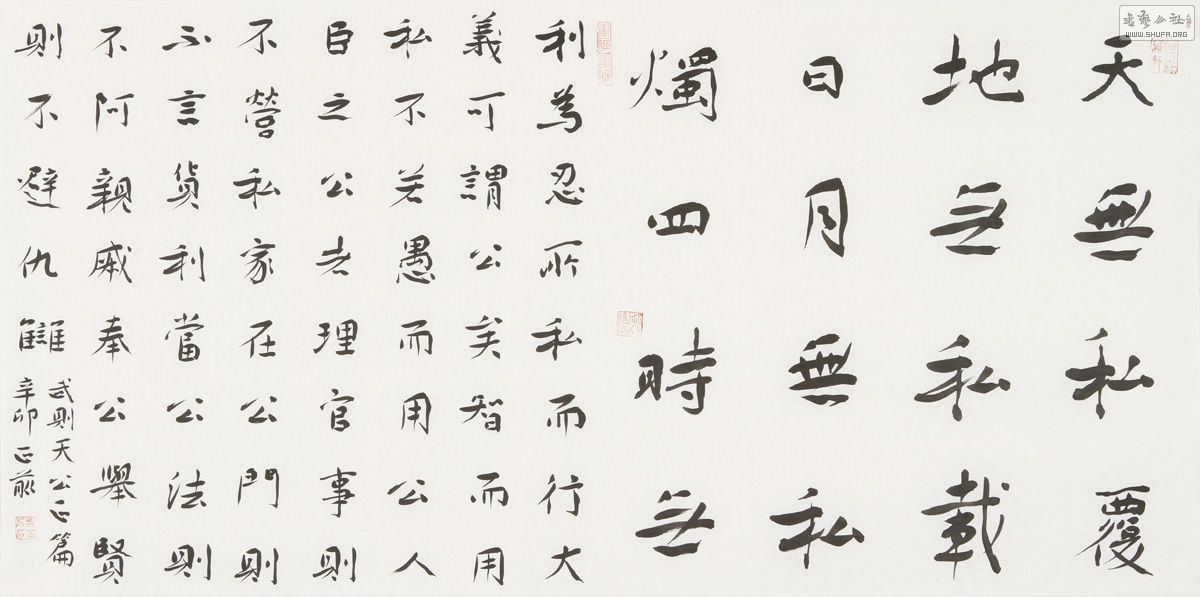 天無私覆
地无私載
日月無私
燭四時无
利為忍所私而行大
義可謂公矣智而用
私不若愚而用公人
臣之公者理官事則
不營私家在公門則
不言貨利當公法則
不阿親戚奉公舉賢
則不避仇讎
武則天公正篇
辛卯正
書藝公社
WWW.SHUFA.ORG